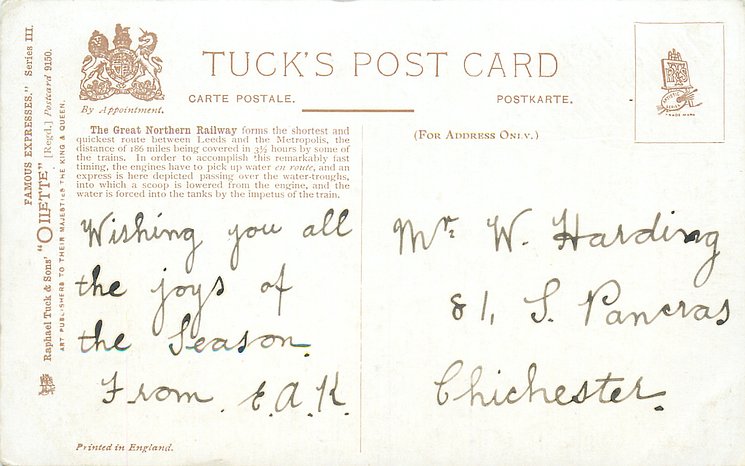 TUCK'S POST CARD
CARTE POSTALE.
POSTKARTE.
By Appointment.
(FOR ADDRESS ONLY.)
FAMOUS EXPRESSES." Series III.
Raphael Tuck & Sons' "OILETTE" [Regd.] Postcard 9150.
ART PUBLISHERS TO THEIR MAJESTIES THE KING & QUEEN.
The Great Northern Railway forms the shortest and
quickest route between Leeds and the Metropolis, the
distance of 186 miles being covered in 3½ hours by some of
the trains. In order to accomplish this remarkably fast
timing, the engines have to pick up water en route, and an
express is here depicted passing over the water-troughs,
into which a scoop is lowered from the engine, and the
water is forced into the tanks by the impetus of the train.
Wishing you all
the joys of
the Season.
From E.A.K.
Mr. W. Harding
81, S. Pancras
Chichester.
Printed in England.
TRADE MARK